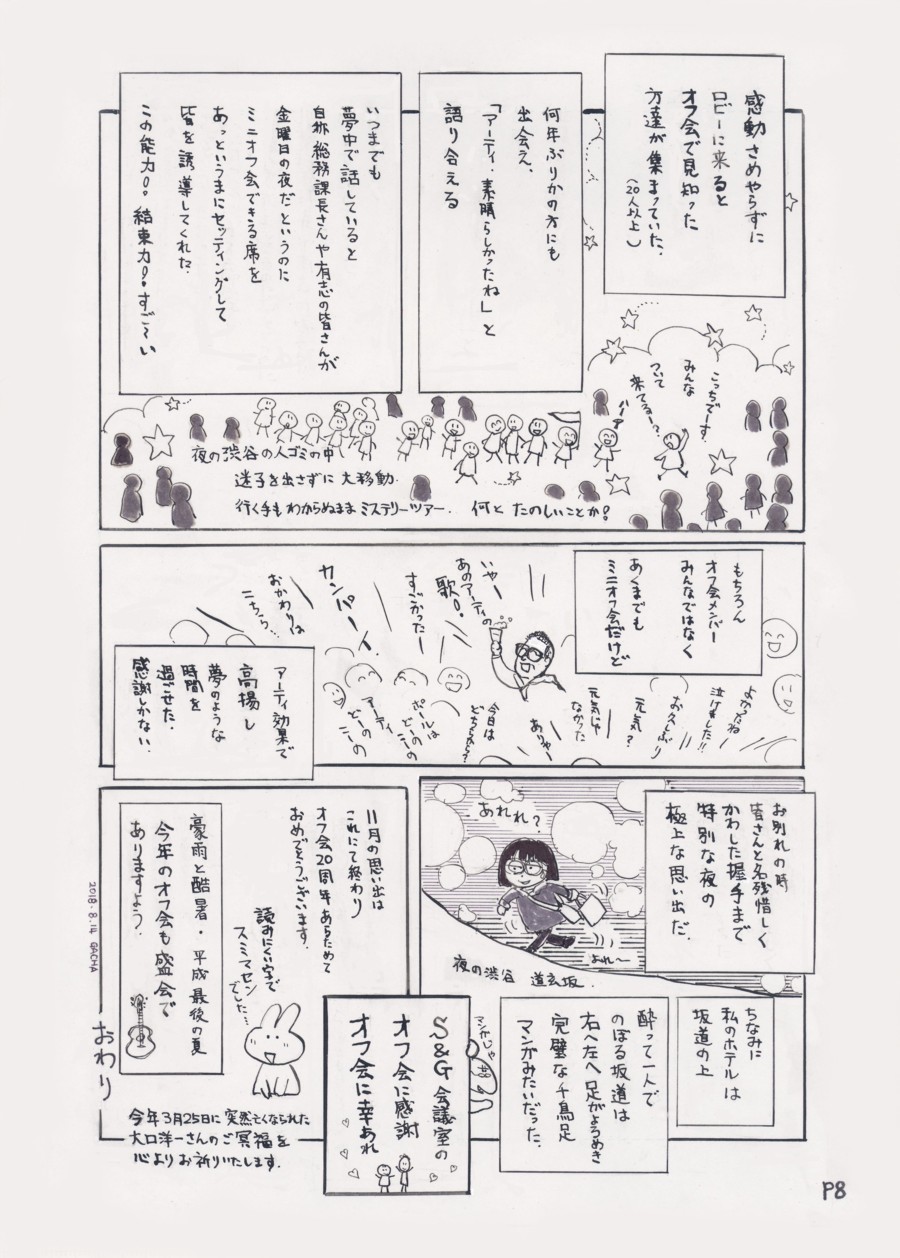 感動さめやらずに
ロビーに来ると
オフ会で見知った
方達が集まっていた。
(20人以上)
何年ぶりかの方にも
出会え、
「アーティ、素晴らしかったね」と
語り合える
いつまでも
夢中で話していると
自称総務課長さんや有志の皆さんが
金曜日の夜だというのに
ミニオフ会できる席を
あっというまにセッティングして
皆を誘導してくれた。
この能力!!結束力!!すご〜い
こっちでーす。
みんな
ついて
来てるー?
ハーァ
夜の渋谷の人ゴミの中
迷子を出さずに大移動.
行く手もわからぬままミステリーツアー. 何とたのしいことか!
もちろん
オフ会メンバー
みんなではなく
あくまでも
ミニオフ会だけど
いやー
あのアーティの
歌!!
すごかったー
カンパーイ
おかわりは
こちら…
よかったね
泣けました!!
お久しぶり
元気?
元気じゃ
なかった
ありゃー
今日は
どちらから?
ポールは
どーのこーの
アーティ
どーのこーの
アーティ効果で
高揚し
夢のような
時間を
過ごせた.
感謝しかない.
お別れの時
皆さんと名残惜しく
かわした握手まで
特別な夜の
極上な思い出だ.
あれれ?
よれ〜
夜の渋谷 道玄坂.
ちなみに
私のホテルは
坂道の上
酔って一人で
のぼる坂道は
右へ左へ足がよろめき
完璧な千鳥足
マンガみたいだった.
マンガじゃ
11月の思い出は
これにて終わり
オフ会20周年あらためて
おめでとうございます.
読みにくい字で
スミマセン
でした…
豪雨と酷暑・平成最後の夏
今年のオフ会も盛会で
ありますよう.
2018.8.14 GACHA
おわり
S&G会議室の
オフ会に感謝
オフ会に幸あれ
今年3月25日に突然亡くなられた
大口洋一さんのご冥福を
心よりお祈りいたします.
P8